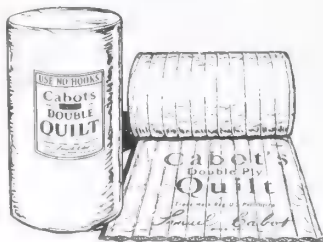 USE NO HOOKS
Cabots
DOUBLE
QUILT
Cabot's
Double Ply
Quilt
Samuel Cabot